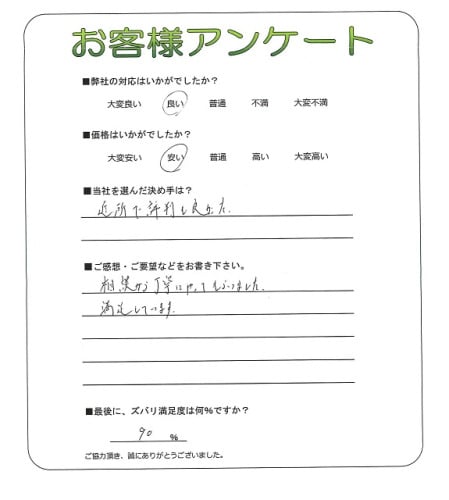 お客様アンケート
■弊社の対応はいかがでしたか？
大変良い 良い 普通 不満 大変不満
■価格はいかがでしたか？
大変安い 安い 普通 高い 大変高い
■当社を選んだ決め手は？
近所で評判も良かった。
■ご感想・ご要望などをお書き下さい。
相談から丁寧にやってもらいました。
満足しています。
■最後に、ズバリ満足度は何％ですか？
90 ％
ご協力頂き、誠にありがとうございました。